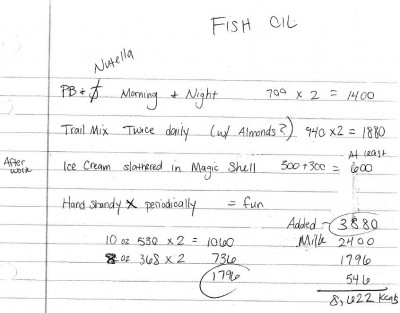 FISH OIL
Nutella
PB & J Morning + Night 700 x 2 = 1400
Trail Mix Twice daily (w/ Almonds?) 940 x 2 = 1880
At least
After work
Ice Cream slathered in Magic Shell 300 + 300 = 600
Hand standy x periodically = fun
Added - 3880
10 oz 530 x 2 = 1060 Milk 2400
8 oz 368 x 2 736 1796
1796 546
8,622 Kcals